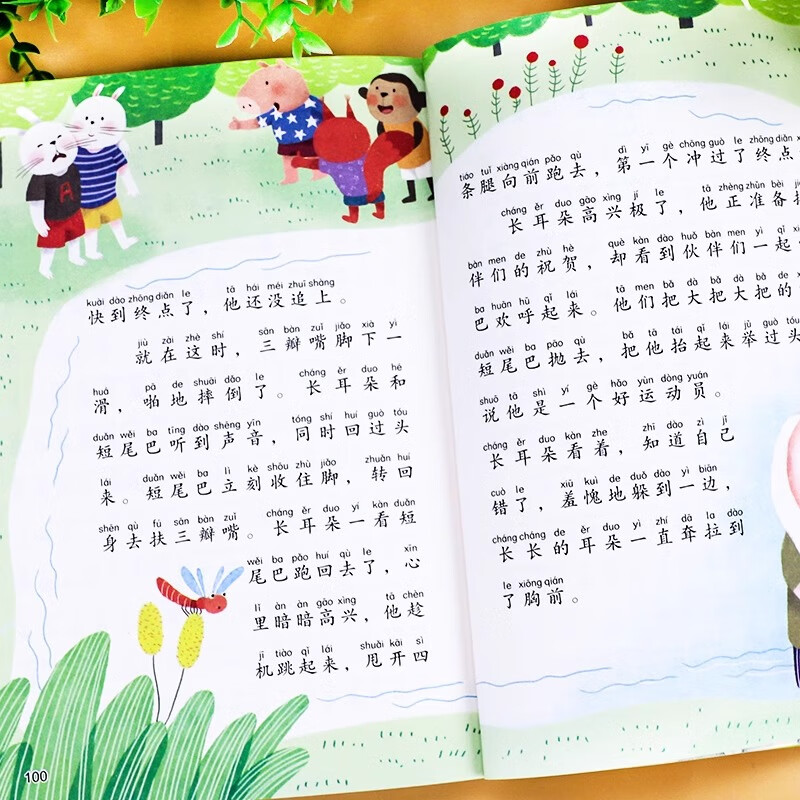 kuài dào zhōng diǎn le tā hái méi zhuī shàng
快到终点了，他还没追上。
jiù zài zhè shí sān bàn zuǐ jiǎo xià yì
就在这时，三瓣嘴脚下一
huá pā de shuāi dǎo le cháng ěr duo hé
滑，啪地摔倒了。长耳朵和
duǎn wěi ba tīng dào shēng yīn tóng shí huí guò tóu
短尾巴听到声音，同时回过头
lái duǎn wěi ba lì kè shōu zhù jiǎo zhuǎn huí
来。短尾巴立刻收住脚，转回
shēn qù fú sān bàn zuǐ cháng ěr duo yí kàn duǎn
身去扶三瓣嘴。长耳朵一看短
wěi ba pǎo huí qù le xīn
尾巴跑回去了，心
lǐ àn àn gāo xìng tā chèn
里暗暗高兴，他趁
jī tiào qǐ lái shuǎi kāi sì
机跳起来，甩开四
100
tiáo tuǐ xiàng qián pǎo qù dì yī gè chōng guò le zhōng diǎn
条腿向前跑去，第一个冲过了终点
cháng ěr duo gāo xìng jí le tā zhèng zhǔn bèi
长耳朵高兴极了，他正准备
bàn men de zhù hè què kàn dào huǒ bàn men yì qǐ
伴们的祝贺，却看到伙伴们一起
ba huān hū qǐ lái tā men bǎ dà bǎ dà bǎ de
巴欢呼起来。他们把大把大把的
duǎn wěi ba pāo qù bǎ tā tái qǐ lái jǔ guò tóu
短尾巴抛去，把他抬起来举过头
shuō tā shì yí gè hǎo yùn dòng yuán
说他是一个好运动员。
cháng ěr duo kàn zhe zhī dào zì jǐ
长耳朵看着，知道自己
cuò le xiū kuì de duǒ dào yì biān
错了，羞愧地躲到一边，
cháng cháng de ěr duo yì zhí dā la dào
长长的耳朵一直耷拉到
le xiōng qián
了胸前。